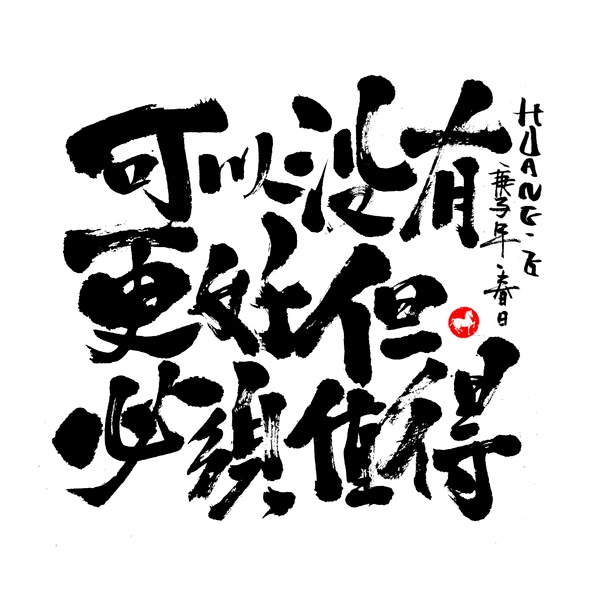 可以没有
更好但
必須值得
HUANG·匠
庚子年·春日